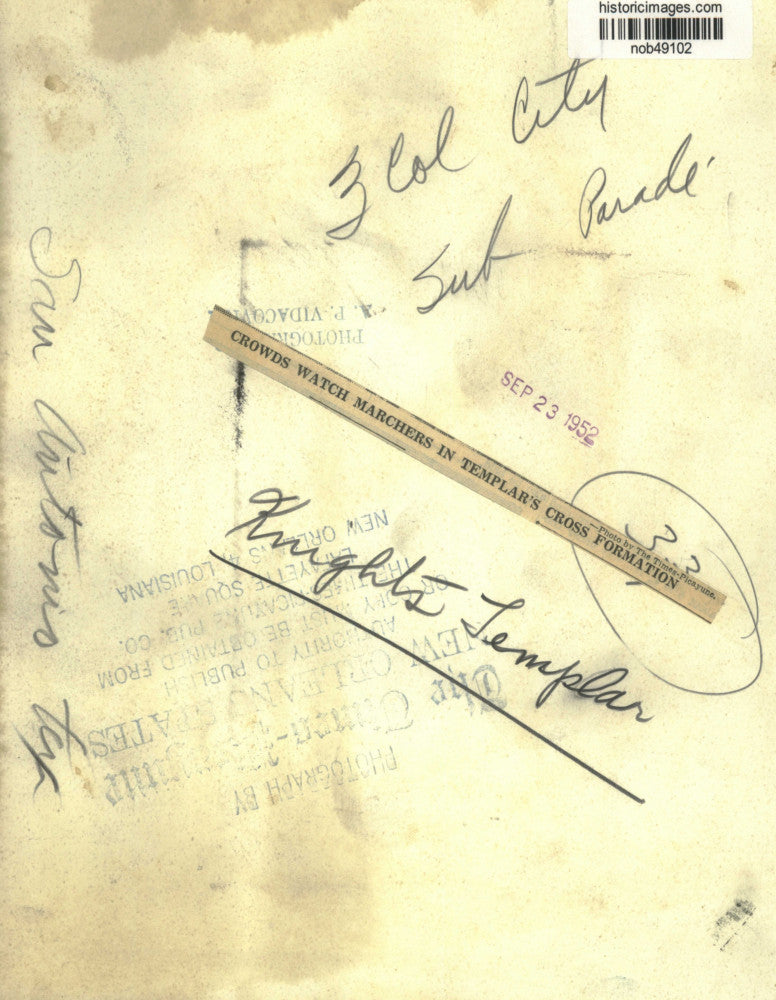 historicimages.com
nob49102
3 Col City
Sub Parade
San Antonio Tex
PHOTOGR
P. VIDACOVI
CROWDS WATCH MARCHERS IN TEMPLAR'S CROSS FORMATION
—Photo by The Times-Picayune.
SEP 23 1952
33
Knights Templar
PHOTOGRAPH BY
The
NEW ORLEANS STATES
AUTHORITY TO PUBLISH
MUST BE OBTAINED FROM
PUB. CO.
LAFAYETTE SQUARE
NEW ORLEANS LOUISIANA